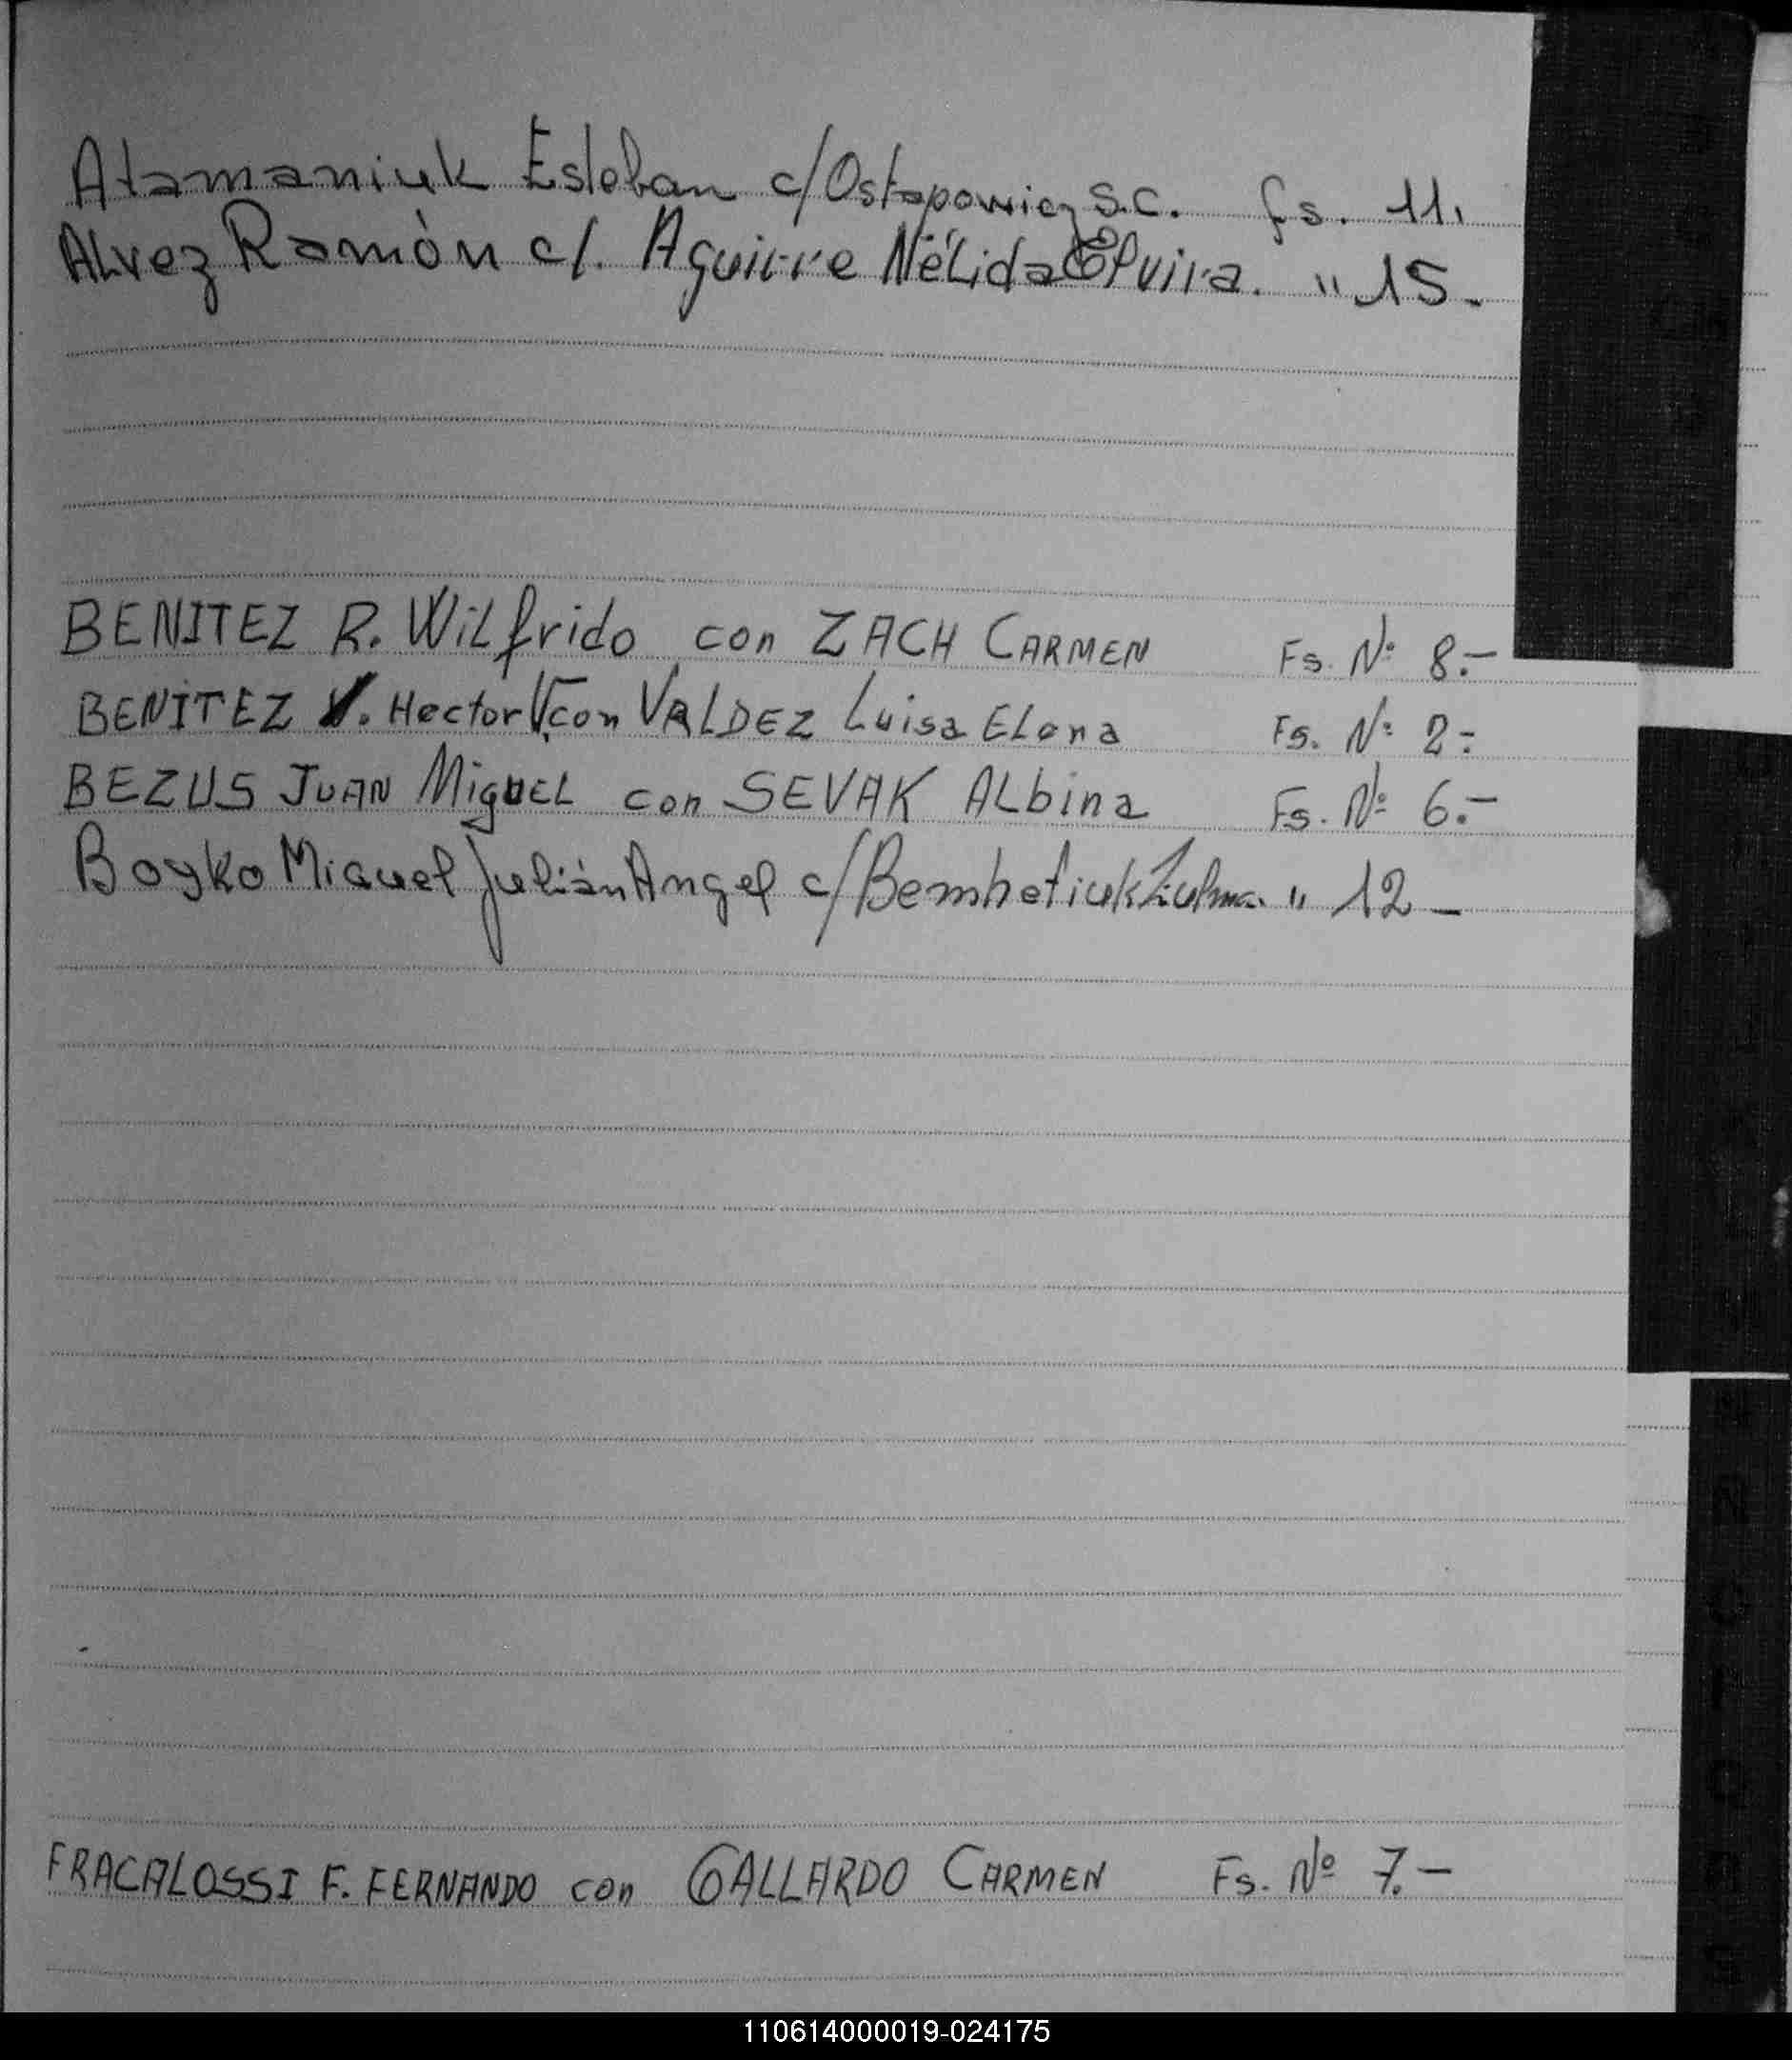 Atamaniuk Esteban c/Ostapowicz S.C. fs. 11.
Alvez Ramón c/. Aguirre Nélida Elvira. " 15.
BENITEZ R. Wilfrido con ZACH CARMEN Fs. Nº 8.-
BENITEZ V. Hector V. con VALDEZ Luisa Elena Fs. Nº 2.-
BEZUS JUAN MiguEL con SEVAK Albina Fs. Nº 6.-
Boyko Miguel Julián Angel c/Bemhetiuk Zulma. " 12-
FRACALOSSI F. FERNANDO con GALLARDO CARMEN Fs. Nº 7.-
110614000019-024175